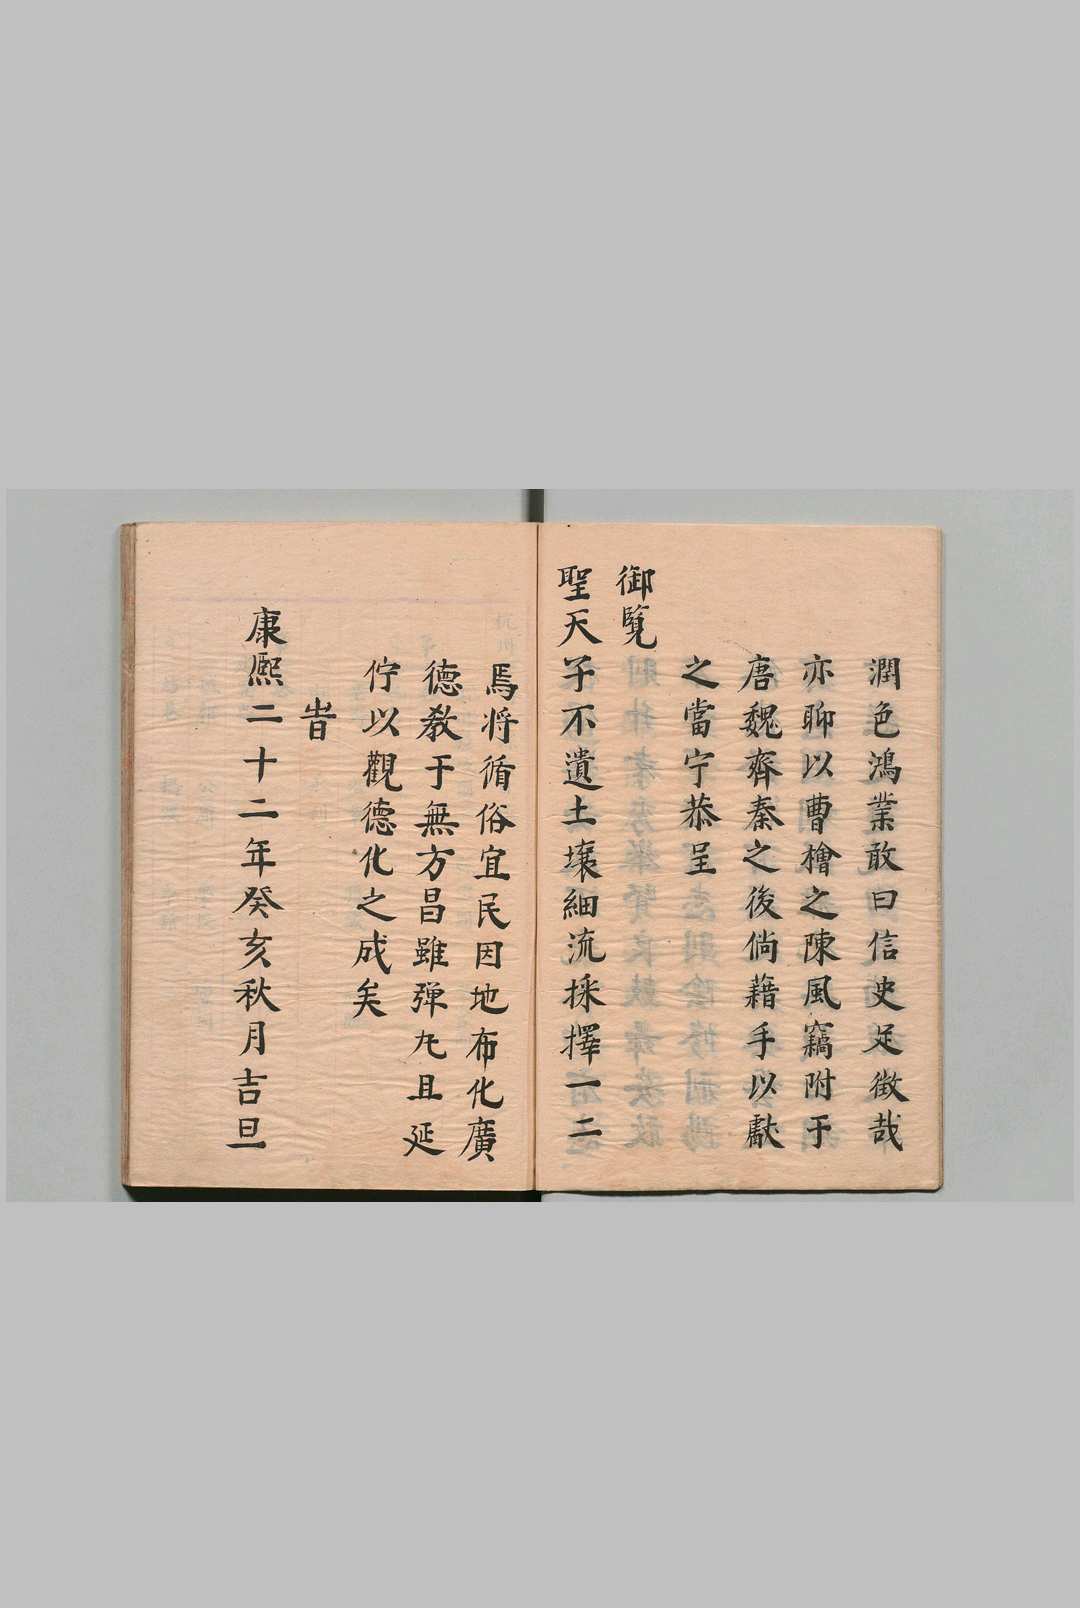 潤色鴻業敢曰信史足徵哉
亦聊以曹檜之陳風竊附于
唐魏齊秦之後倘藉手以獻
之當宁恭呈
御覧
聖天子不遺土壤細流採擇一二
焉将循俗宜民因地布化廣
德教于無方昌雖弾丸且延
佇以觀德化之成矣
旹
康熈二十二年癸亥秋月吉旦